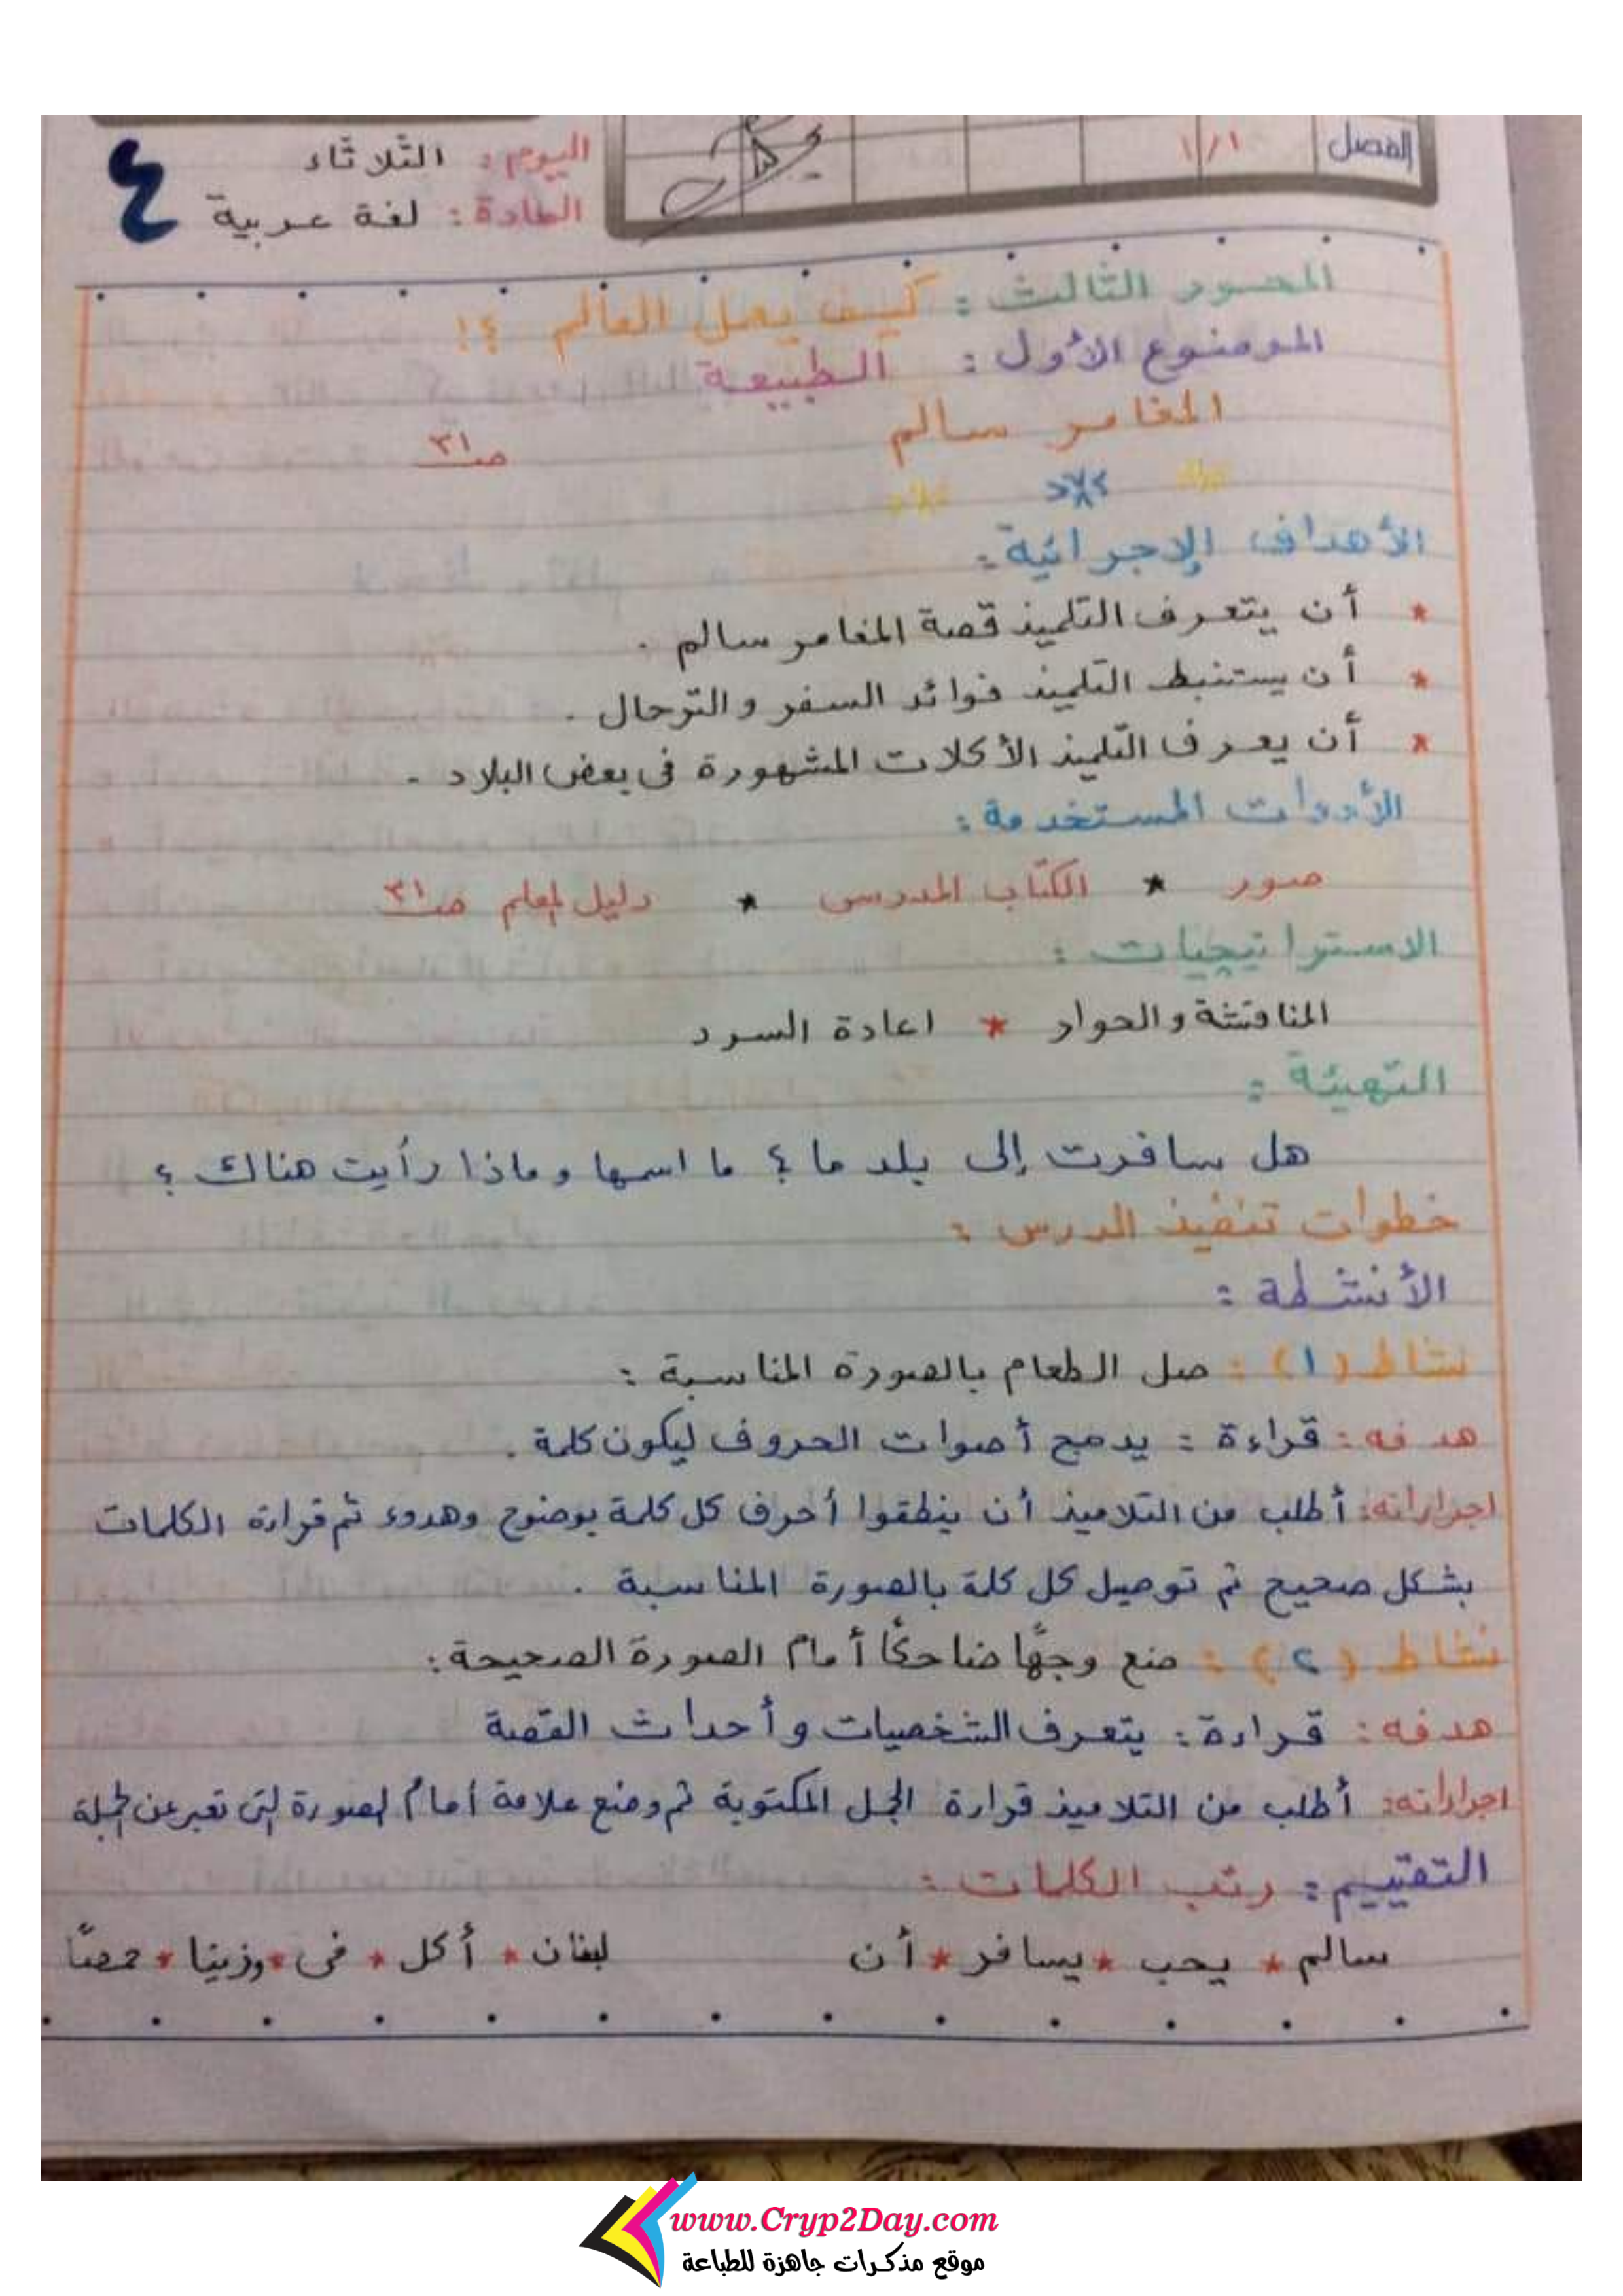 الفصل ١/١
اليوم : الثلاثاء
المادة : لغة عربية
٤
المحور الثالث : كيف يعمل العالم ؟!
الموضوع الأول : الطبيعة
المغامر سالم صـ٣١
الأهداف الإجرائية :
* أن يتعرف التلميذ قصة المغامر سالم .
* أن يستنبط التلميذ فوائد السفر والترحال .
* أن يعرف التلميذ الأكلات المشهورة فى بعض البلاد .
الأدوات المستخدمة :
صور * الكتاب المدرسى * دليل المعلم صـ٣١
الاستراتيجيات :
المناقشة والحوار * اعادة السرد
التهيئة :
هل سافرت إلى بلد ما ؟ ما اسمها وماذا رأيت هناك ؟
خطوات تنفيذ الدرس :
الأنشطة :
نشاط (١) : صل الطعام بالصورة المناسبة :
هدفه : قراءة : يدمج أصوات الحروف ليكون كلمة .
اجراءاته : أطلب من التلاميذ أن ينطقوا أحرف كل كلمة بوضوح وهدوء ثم قراءة الكلمات
بشكل صحيح ثم توصيل كل كلمة بالصورة المناسبة .
نشاط (٢) : ضع وجهًا ضاحكًا أمام الصورة الصحيحة :
هدفه : قراءة : يتعرف الشخصيات وأحداث القصة
اجراءاته : أطلب من التلاميذ قراءة الجمل المكتوبة ثم وضع علامة أمام الصورة التى تعبر عن الجملة
التقييم : رتب الكلمات :
سالم * يحب * يسافر * أن لبنان * أكل * فى * وزينيا * حمصًا
www.Cryp2Day.com
موقع مذكرات جاهزة للطباعة